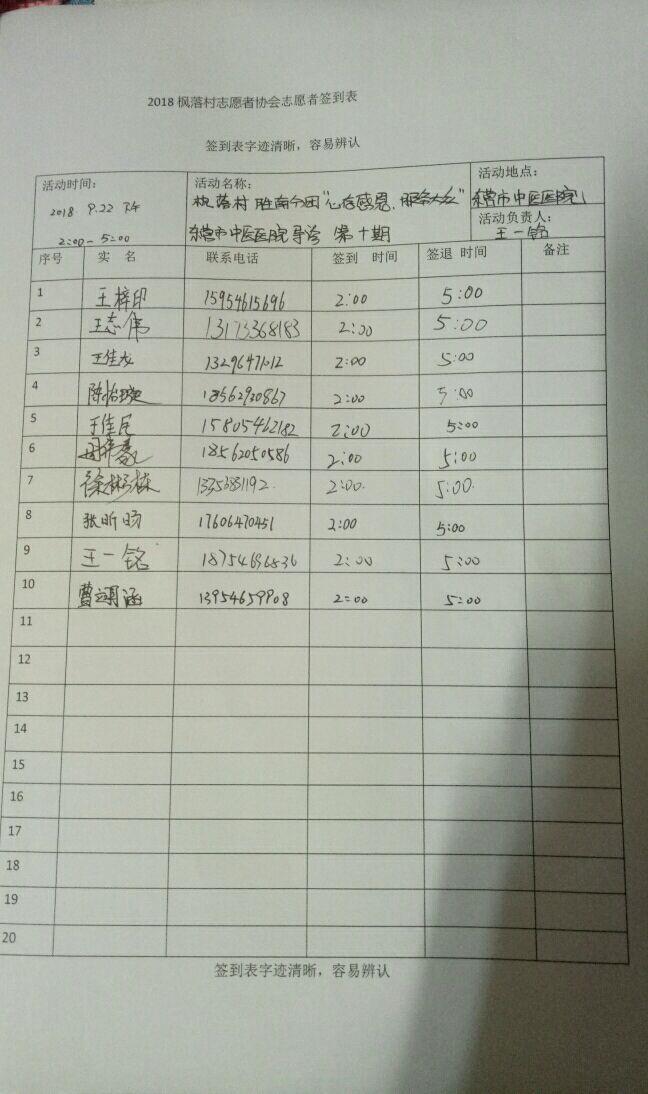 2018 枫落村志愿者协会志愿者签到表
签到表字迹清晰，容易辨认
活动时间：
2018 9.22 下午
2:00-5:00
活动名称：
枫落村 胜南分团"心怀感恩，服务大众"
东营市中医医院导诊 第十期
活动地点：
东营市中医医院
活动负责人：
王一铭
序号 实 名 联系电话 签到 时间 签退 时间 备注
1 王梓印 15954615696 2:00 5:00
2 王志伟 13173368183 2:00 5:00
3 王佳龙 13296471012 2:00 5:00
4 陈怡璇 18562930867 2:00 5:00
5 于佳民 15805462182 2:00 5:00
6 18562050586 2:00 5:00
7 徐彬栋 2:00 5:00
8 张昕旸 17606470451 2:00 5:00
9 王一铭 18754636836 2:00 5:00
10 曹翊涵 13954659908 2:00 5:00
11
12
13
14
15
16
17
18
19
20
签到表字迹清晰，容易辨认